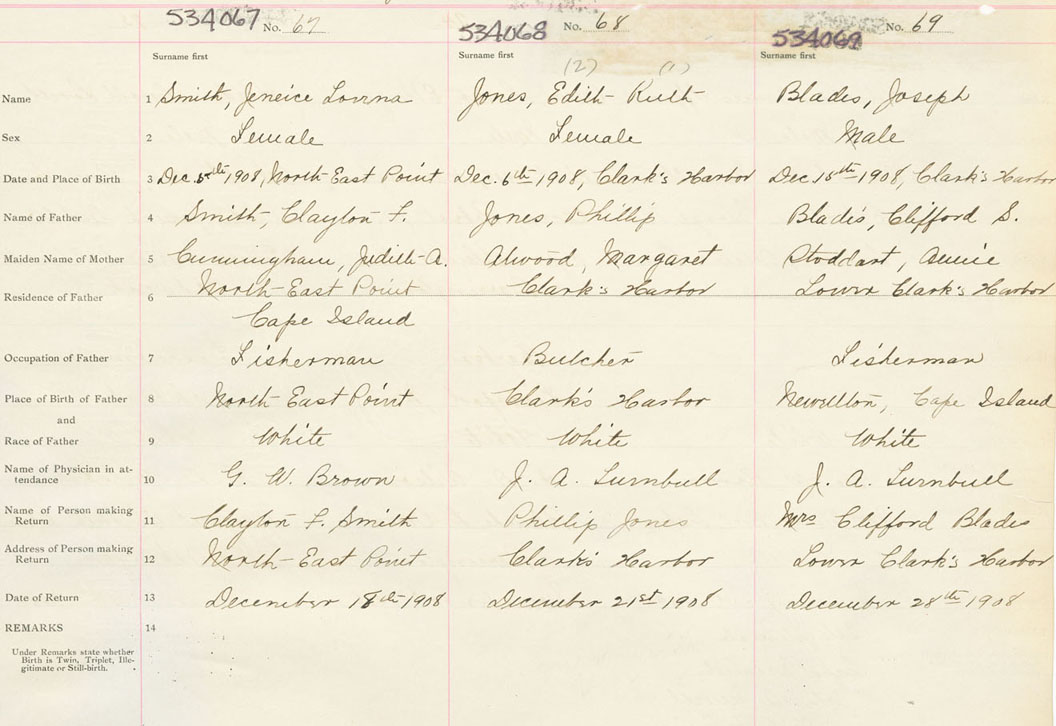 534067 No. 67
534068 No. 68
534069 No. 69
Surname first Surname first Surname first
(2) (1)
Name 1 Smith, Jeneice Lovina Jones, Edith Ruth Blades, Joseph
Sex 2 Female Female Male
Date and Place of Birth 3 Dec. 5th 1908, North East Point Dec. 6th 1908, Clark's Harbor Dec 15th 1908, Clark's Harbor
Name of Father 4 Smith, Clayton F. Jones, Phillip Blades, Clifford S.
Maiden Name of Mother 5 Cunningham, Judith A. Atwood, Margaret Stoddart, Annie
Residence of Father 6 North East Point Clark's Harbor Lower Clark's Harbor
Cape Island
Occupation of Father 7 Fisherman Butcher Fisherman
Place of Birth of Father 8 North East Point Clark's Harbor Newellton, Cape Island
and
Race of Father 9 White White White
Name of Physician in at-
tendance 10 G. W. Brown J. A. Turnbull J. A. Turnbull
Name of Person making
Return 11 Clayton F. Smith Phillip Jones Mrs Clifford Blades
Address of Person making
Return 12 North East Point Clark's Harbor Lower Clark's Harbor
Date of Return 13 December 18th 1908 December 21st 1908 December 28th 1908
REMARKS 14
Under Remarks state whether
Birth is Twin, Triplet, Ille-
gitimate or Still-birth.